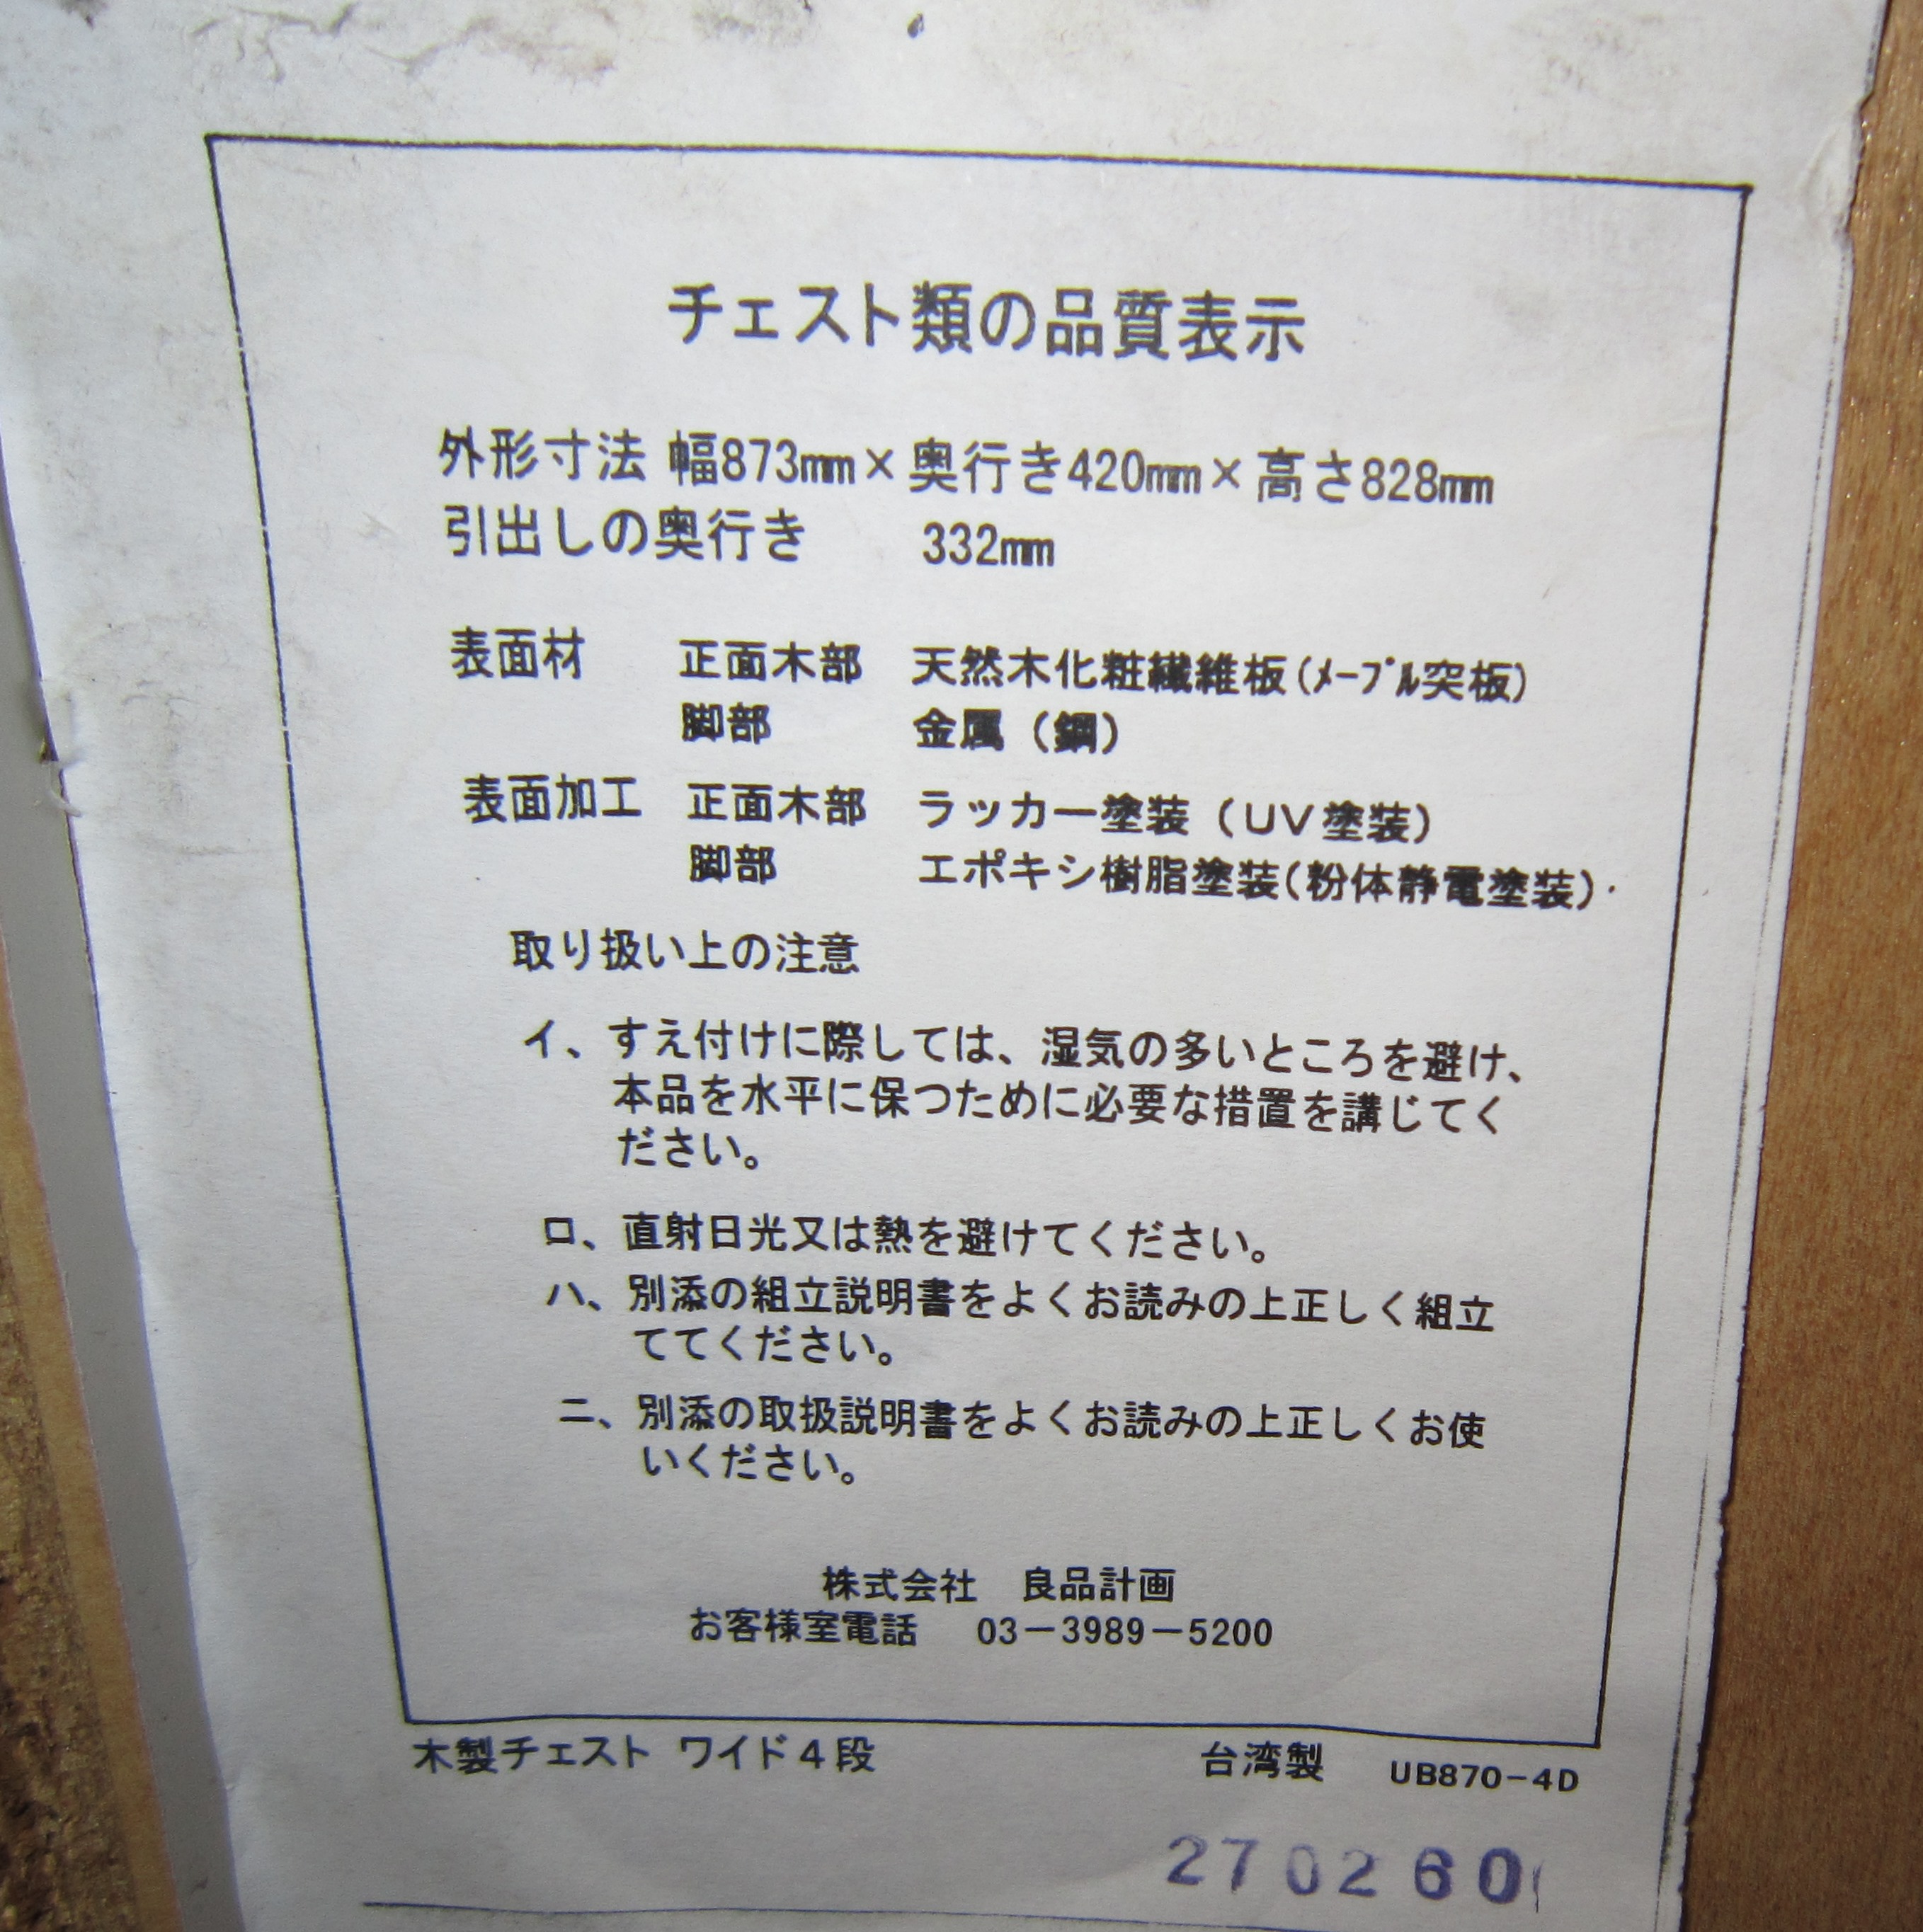 チェスト類の品質表示
外形寸法 幅873mm×奥行き420mm×高さ828mm
引出しの奥行き 332mm
表面材 正面木部 天然木化粧繊維板(ﾒｰﾌﾟﾙ突板)
脚部 金属（鋼）
表面加工 正面木部 ラッカー塗装（UV塗装）
脚部 エポキシ樹脂塗装(粉体静電塗装)
取り扱い上の注意
イ、すえ付けに際しては、湿気の多いところを避け、
本品を水平に保つために必要な措置を講じてく
ださい。
ロ、直射日光又は熱を避けてください。
ハ、別添の組立説明書をよくお読みの上正しく組立
ててください。
ニ、別添の取扱説明書をよくお読みの上正しくお使
いください。
株式会社 良品計画
お客様室電話 03－3989－5200
木製チェスト ワイド4段 台湾製 UB870-4D
270260